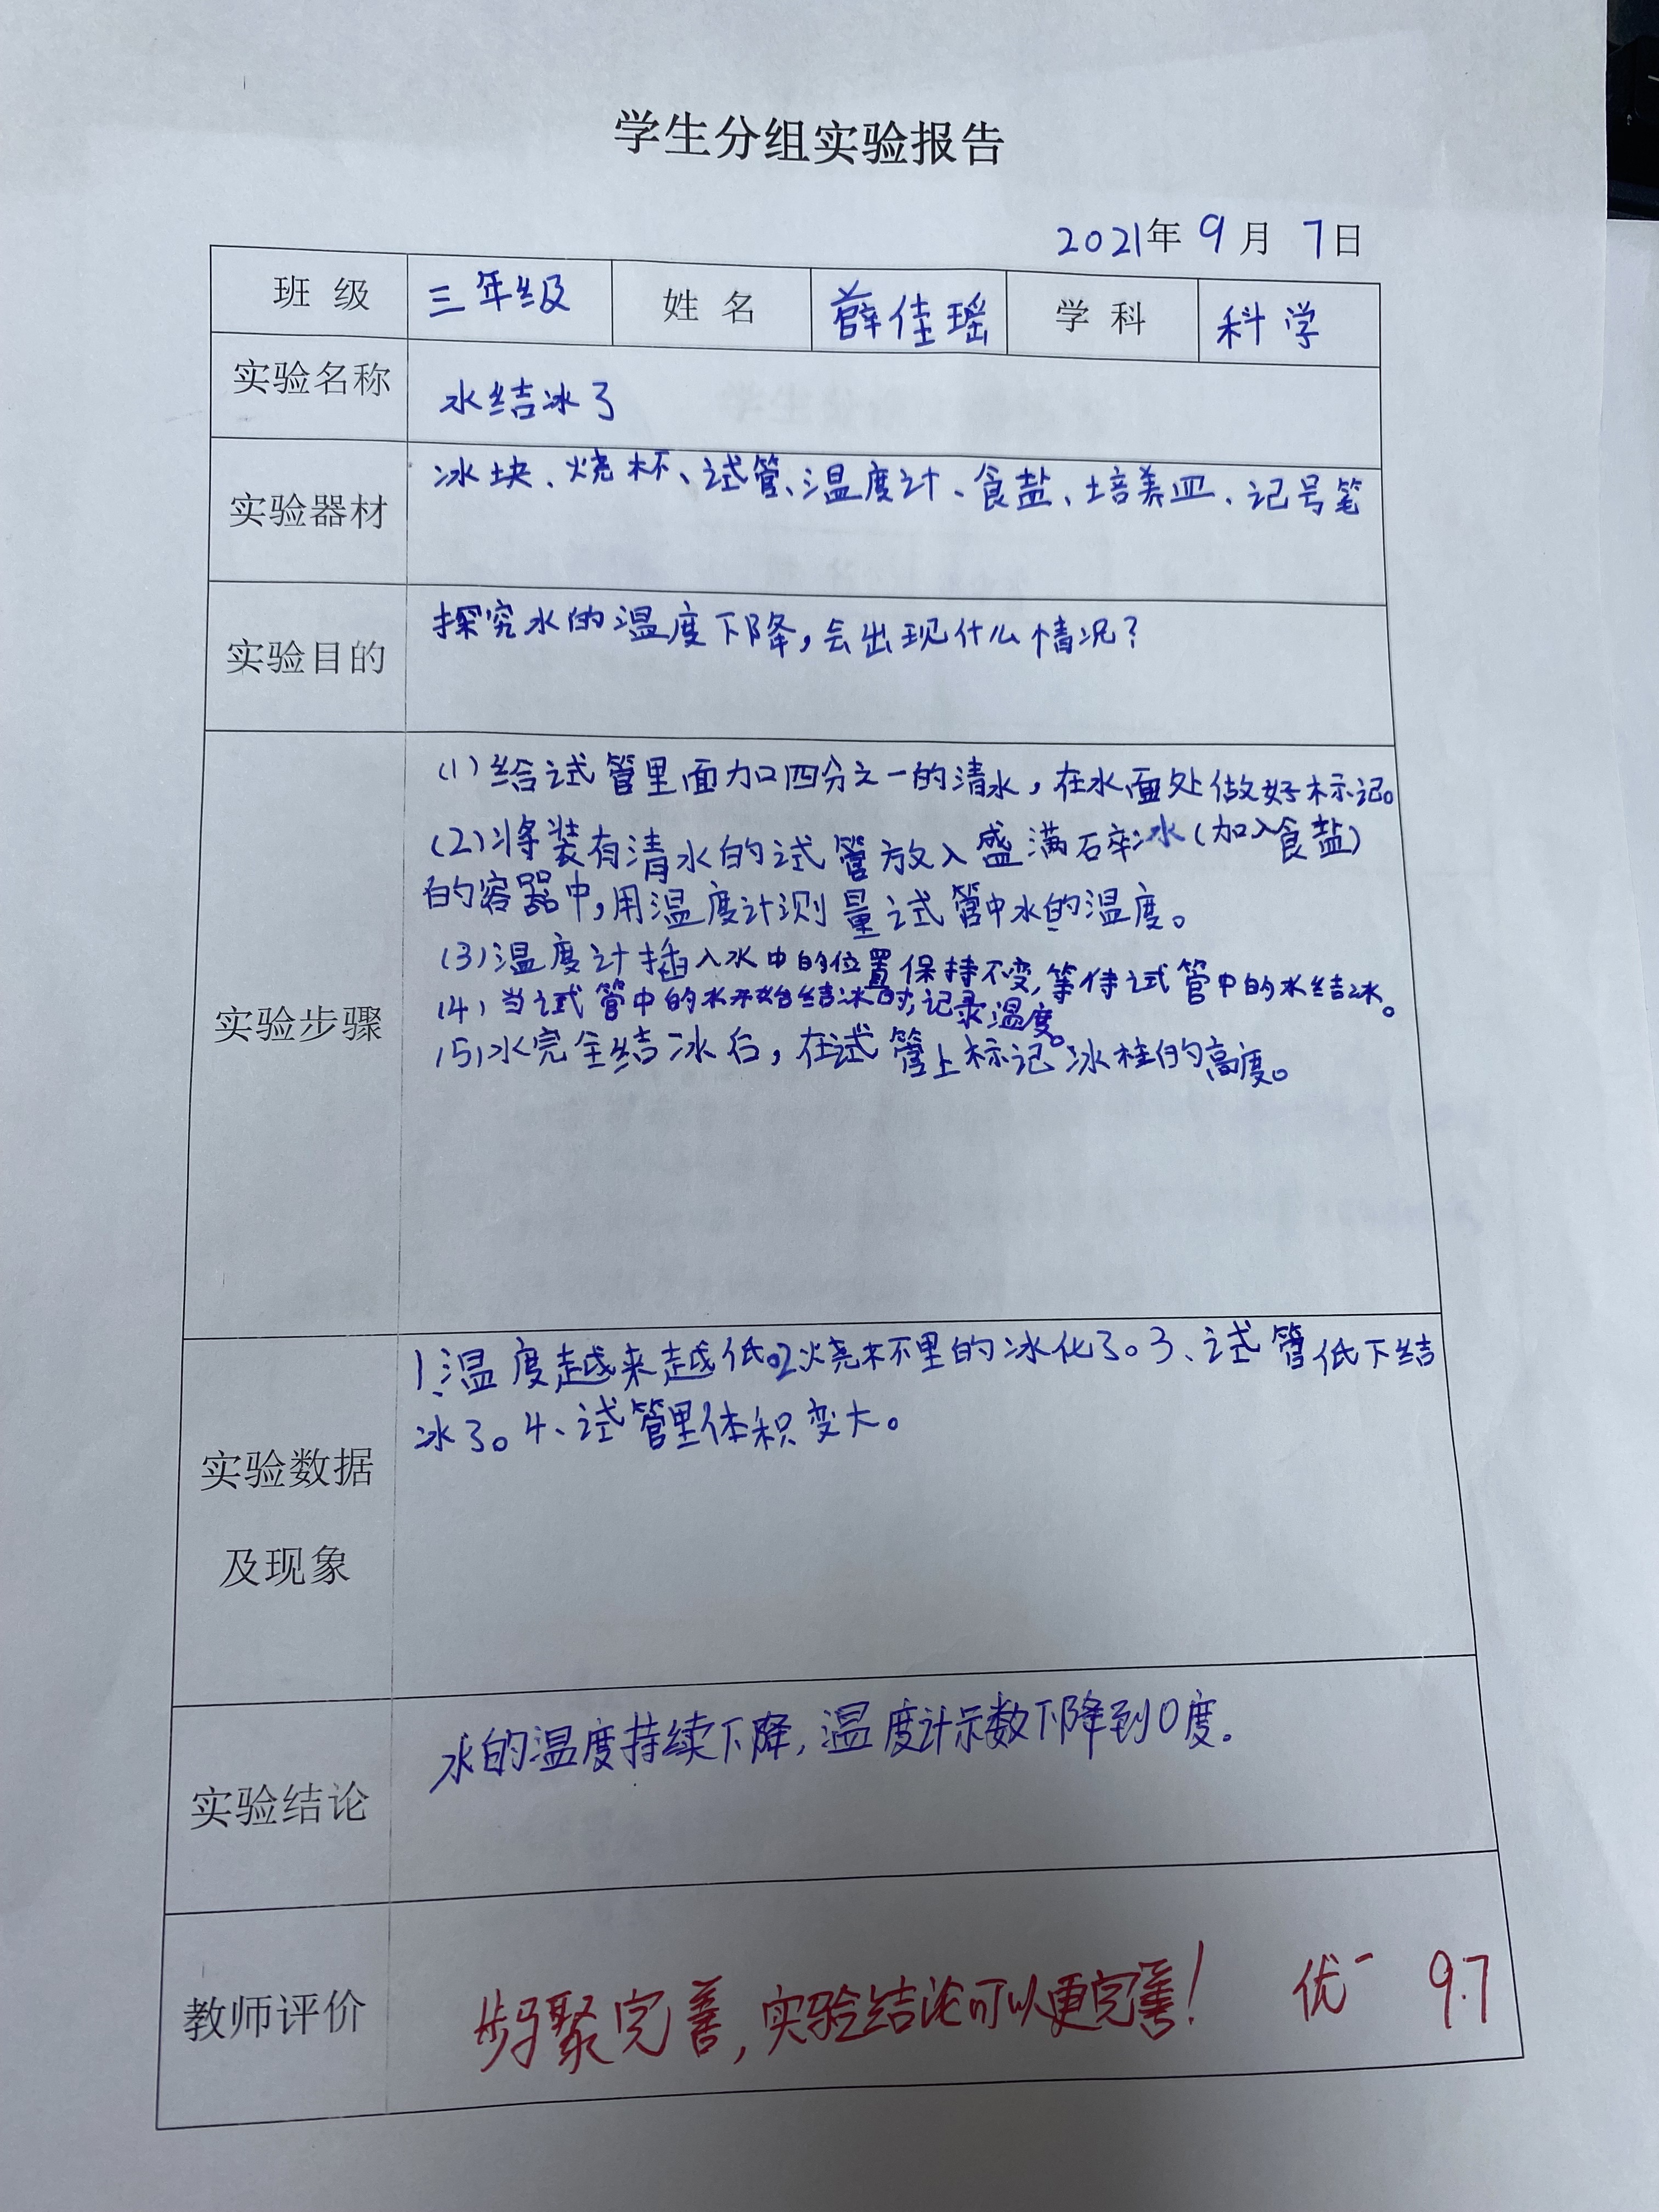 学生分组实验报告
2021年 9月 7日
班级 三年级 姓名 薛佳瑶 学科 科学
实验名称 水结冰了
实验器材 冰块、烧杯、试管、温度计、食盐、培养皿、记号笔
实验目的 探究水的温度下降,会出现什么情况?
实验步骤
(1)给试管里面加四分之一的清水,在水面处做好标记。
(2)将装有清水的试管放入盛满碎冰(加入食盐)
的容器中,用温度计测量试管中水的温度。
(3)温度计插入水中的位置保持不变,等待试管中的水结冰。
(4)当试管中的水开始结冰时,记录温度。
(5)水完全结冰后,在试管上标记冰柱的高度。
实验数据
及现象
1、温度越来越低。2烧杯里的冰化了。3、试管低下结
冰了。4、试管里体积变大。
实验结论 水的温度持续下降,温度计示数下降到0度。
教师评价 步骤完善,实验结论可以更完善! 优- 9.7